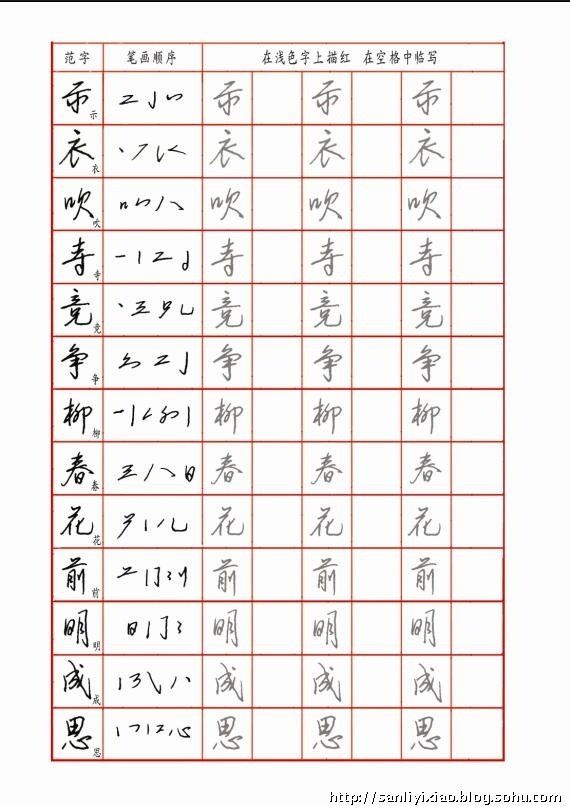 范字 笔画顺序 在浅色字上描红 在空格中临写
示 示 示 示 示
衣 衣 衣 衣 衣
吹 吹 吹 吹 吹
寺 寺 寺 寺 寺
竞 竞 竞 竞 竞
争 争 争 争 争
柳 柳 柳 柳 柳
春 春 春 春 春
花 花 花 花 花
前 前 前 前 前
明 明 明 明 明
成 成 成 成 成
思 思 思 思 思
http://sanliyi.xiao.blog.sohu.com